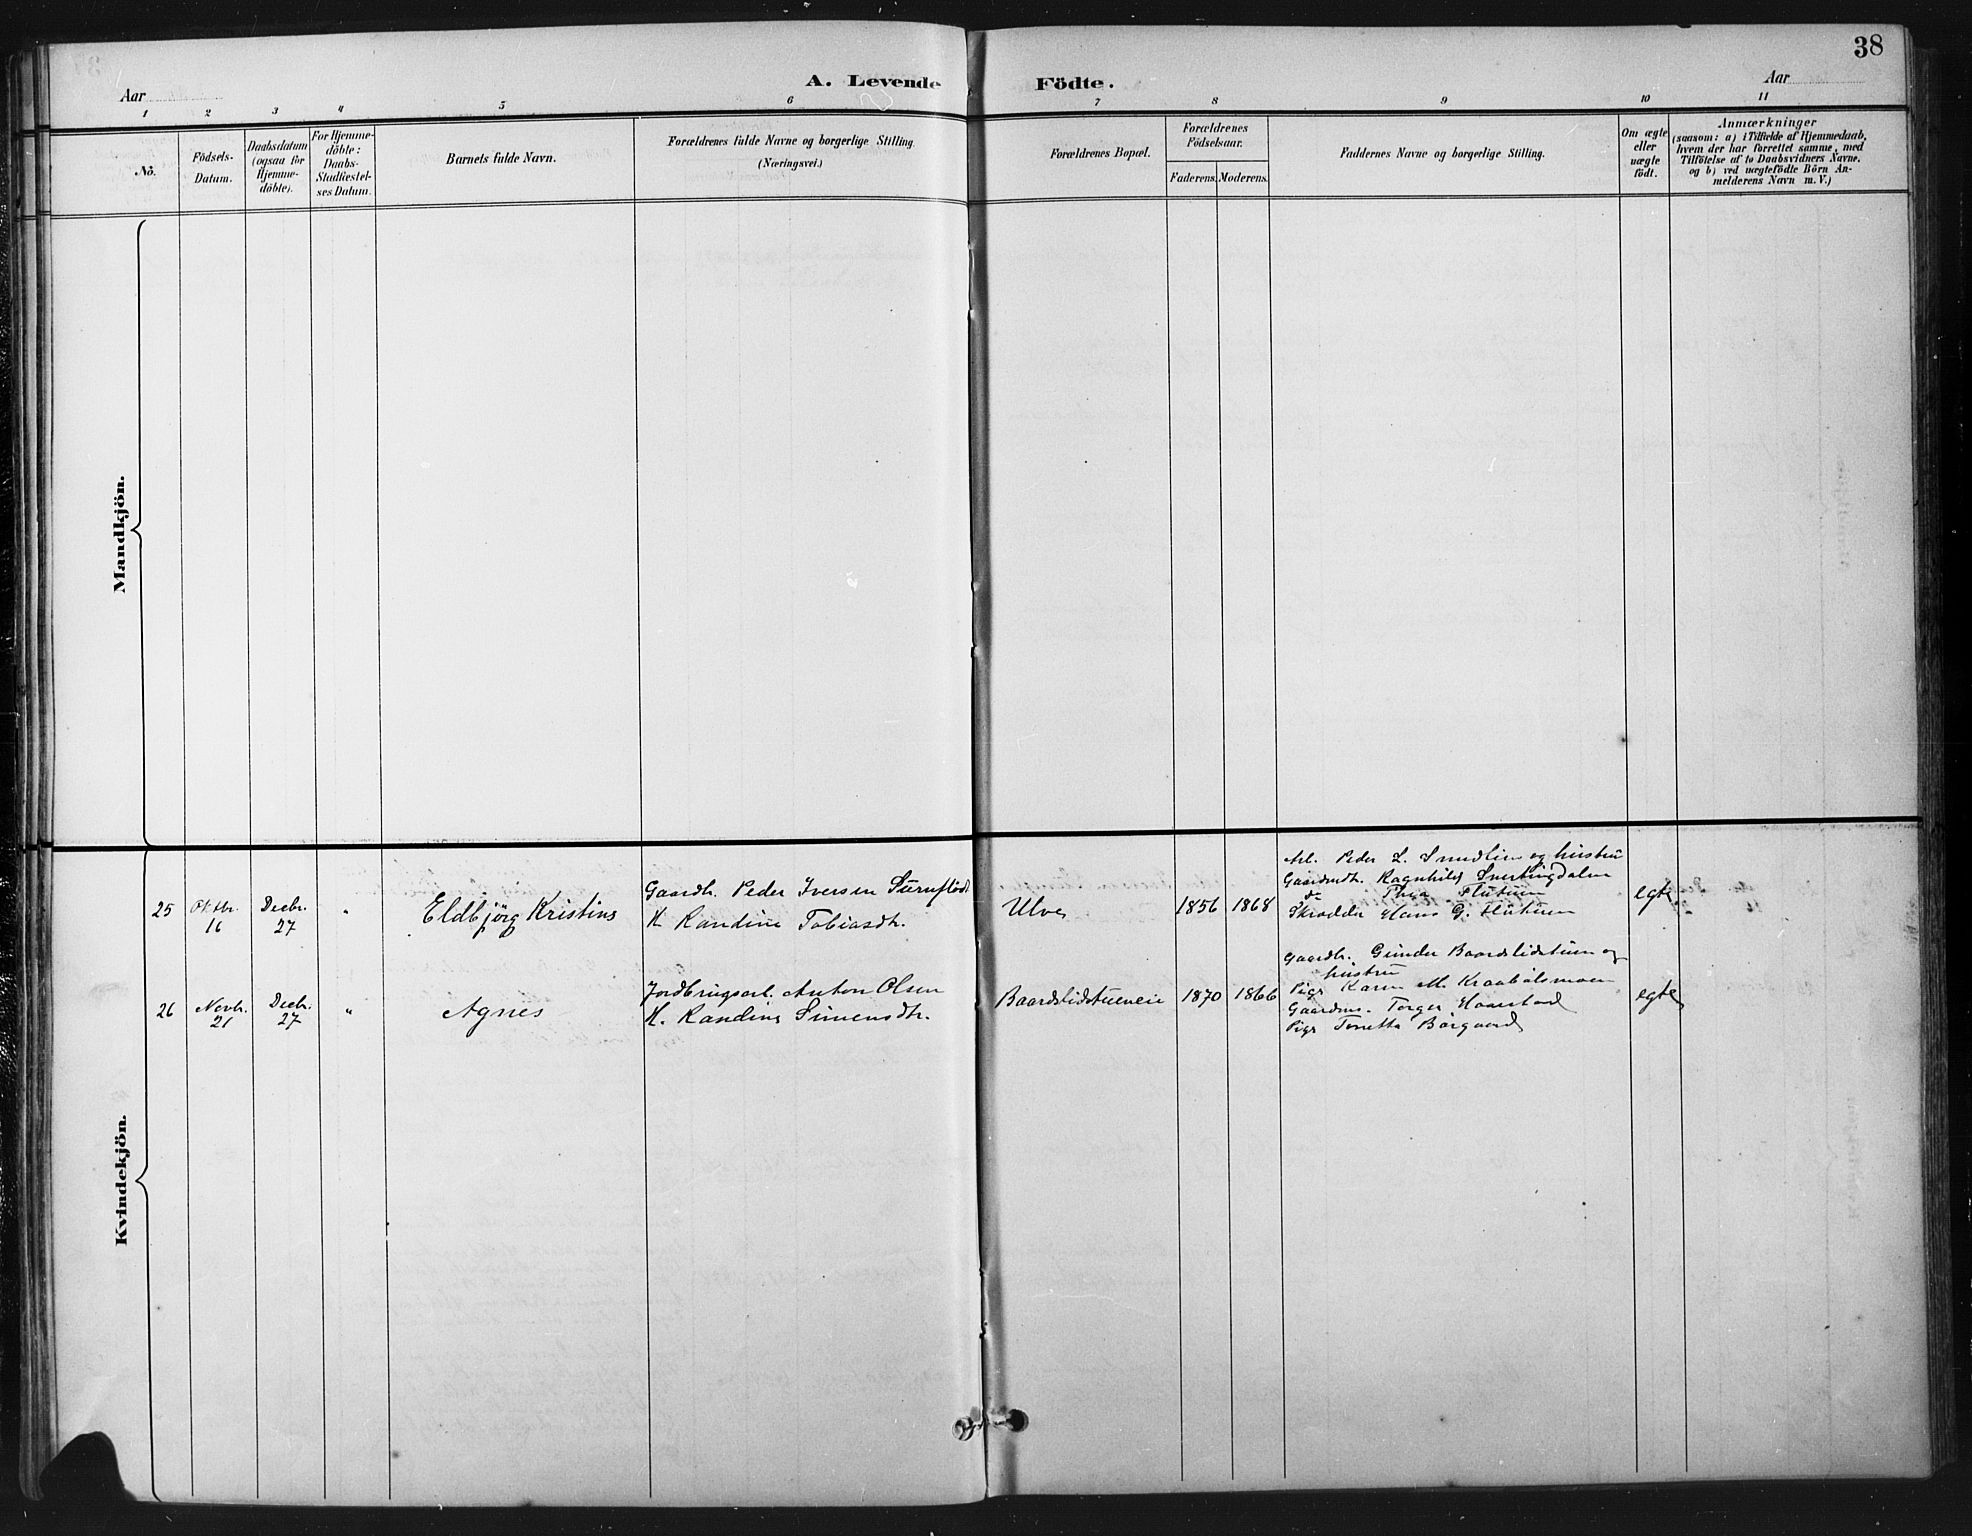 38
A. Levende Födte.
Aar Aar
1 2 3 4 5 6 7 8 9 10 11
No.
Födsels-
Datum.
Daabsdatum
(ogsaa for
Hjemme-
döbte).
For Hjemme-
döbte:
Daabs-
Stadfæstel-
ses Datum.
Barnets fulde Navn.
Forældrenes fulde Navne og borgerlige Stilling.
(Næringsvei.)
Forældrenes Bopæl.
Forældrenes
Födselsaar.
Faderens. Moderens.
Faddernes Navne og borgerlige Stilling.
Om ægte
eller
uægte
födt.
Anmærkninger
(saasom: a) i Tilfælde af Hjemmedaab,
hvem der har forrettet samme, med
Tilföielse af to Daabsvidners Navne,
og b) ved uægtefödte Börn An-
melderens Navn m. V.)
Mandkjön.
Kvindekjön.
25
Oktbr.
16
Decbr.
27
"
Eldbjörg Kristine
Gaardb. Peder Iversen
H. Randine Tobiasdtr.
Ulve
1856 1868
Arb. Peder L. og hustru
Gaardmdt. Ragnhild Svertingdalen
do Thea
Skrædder Hans G.
egte
26
Novbr.
21
Decbr.
27
"
Agnes
Jordbrugsarb. Anton Olsen
H. Randine Simensdtr.
Baardslidstueneie
1870 1866
Gaardbr. Gunder Baardslidstuen og
hustru
Pige Karen M. Kraabölsmoen
Gaardms. Torger Haarstad
Pige Tonetta Börgaard
egte